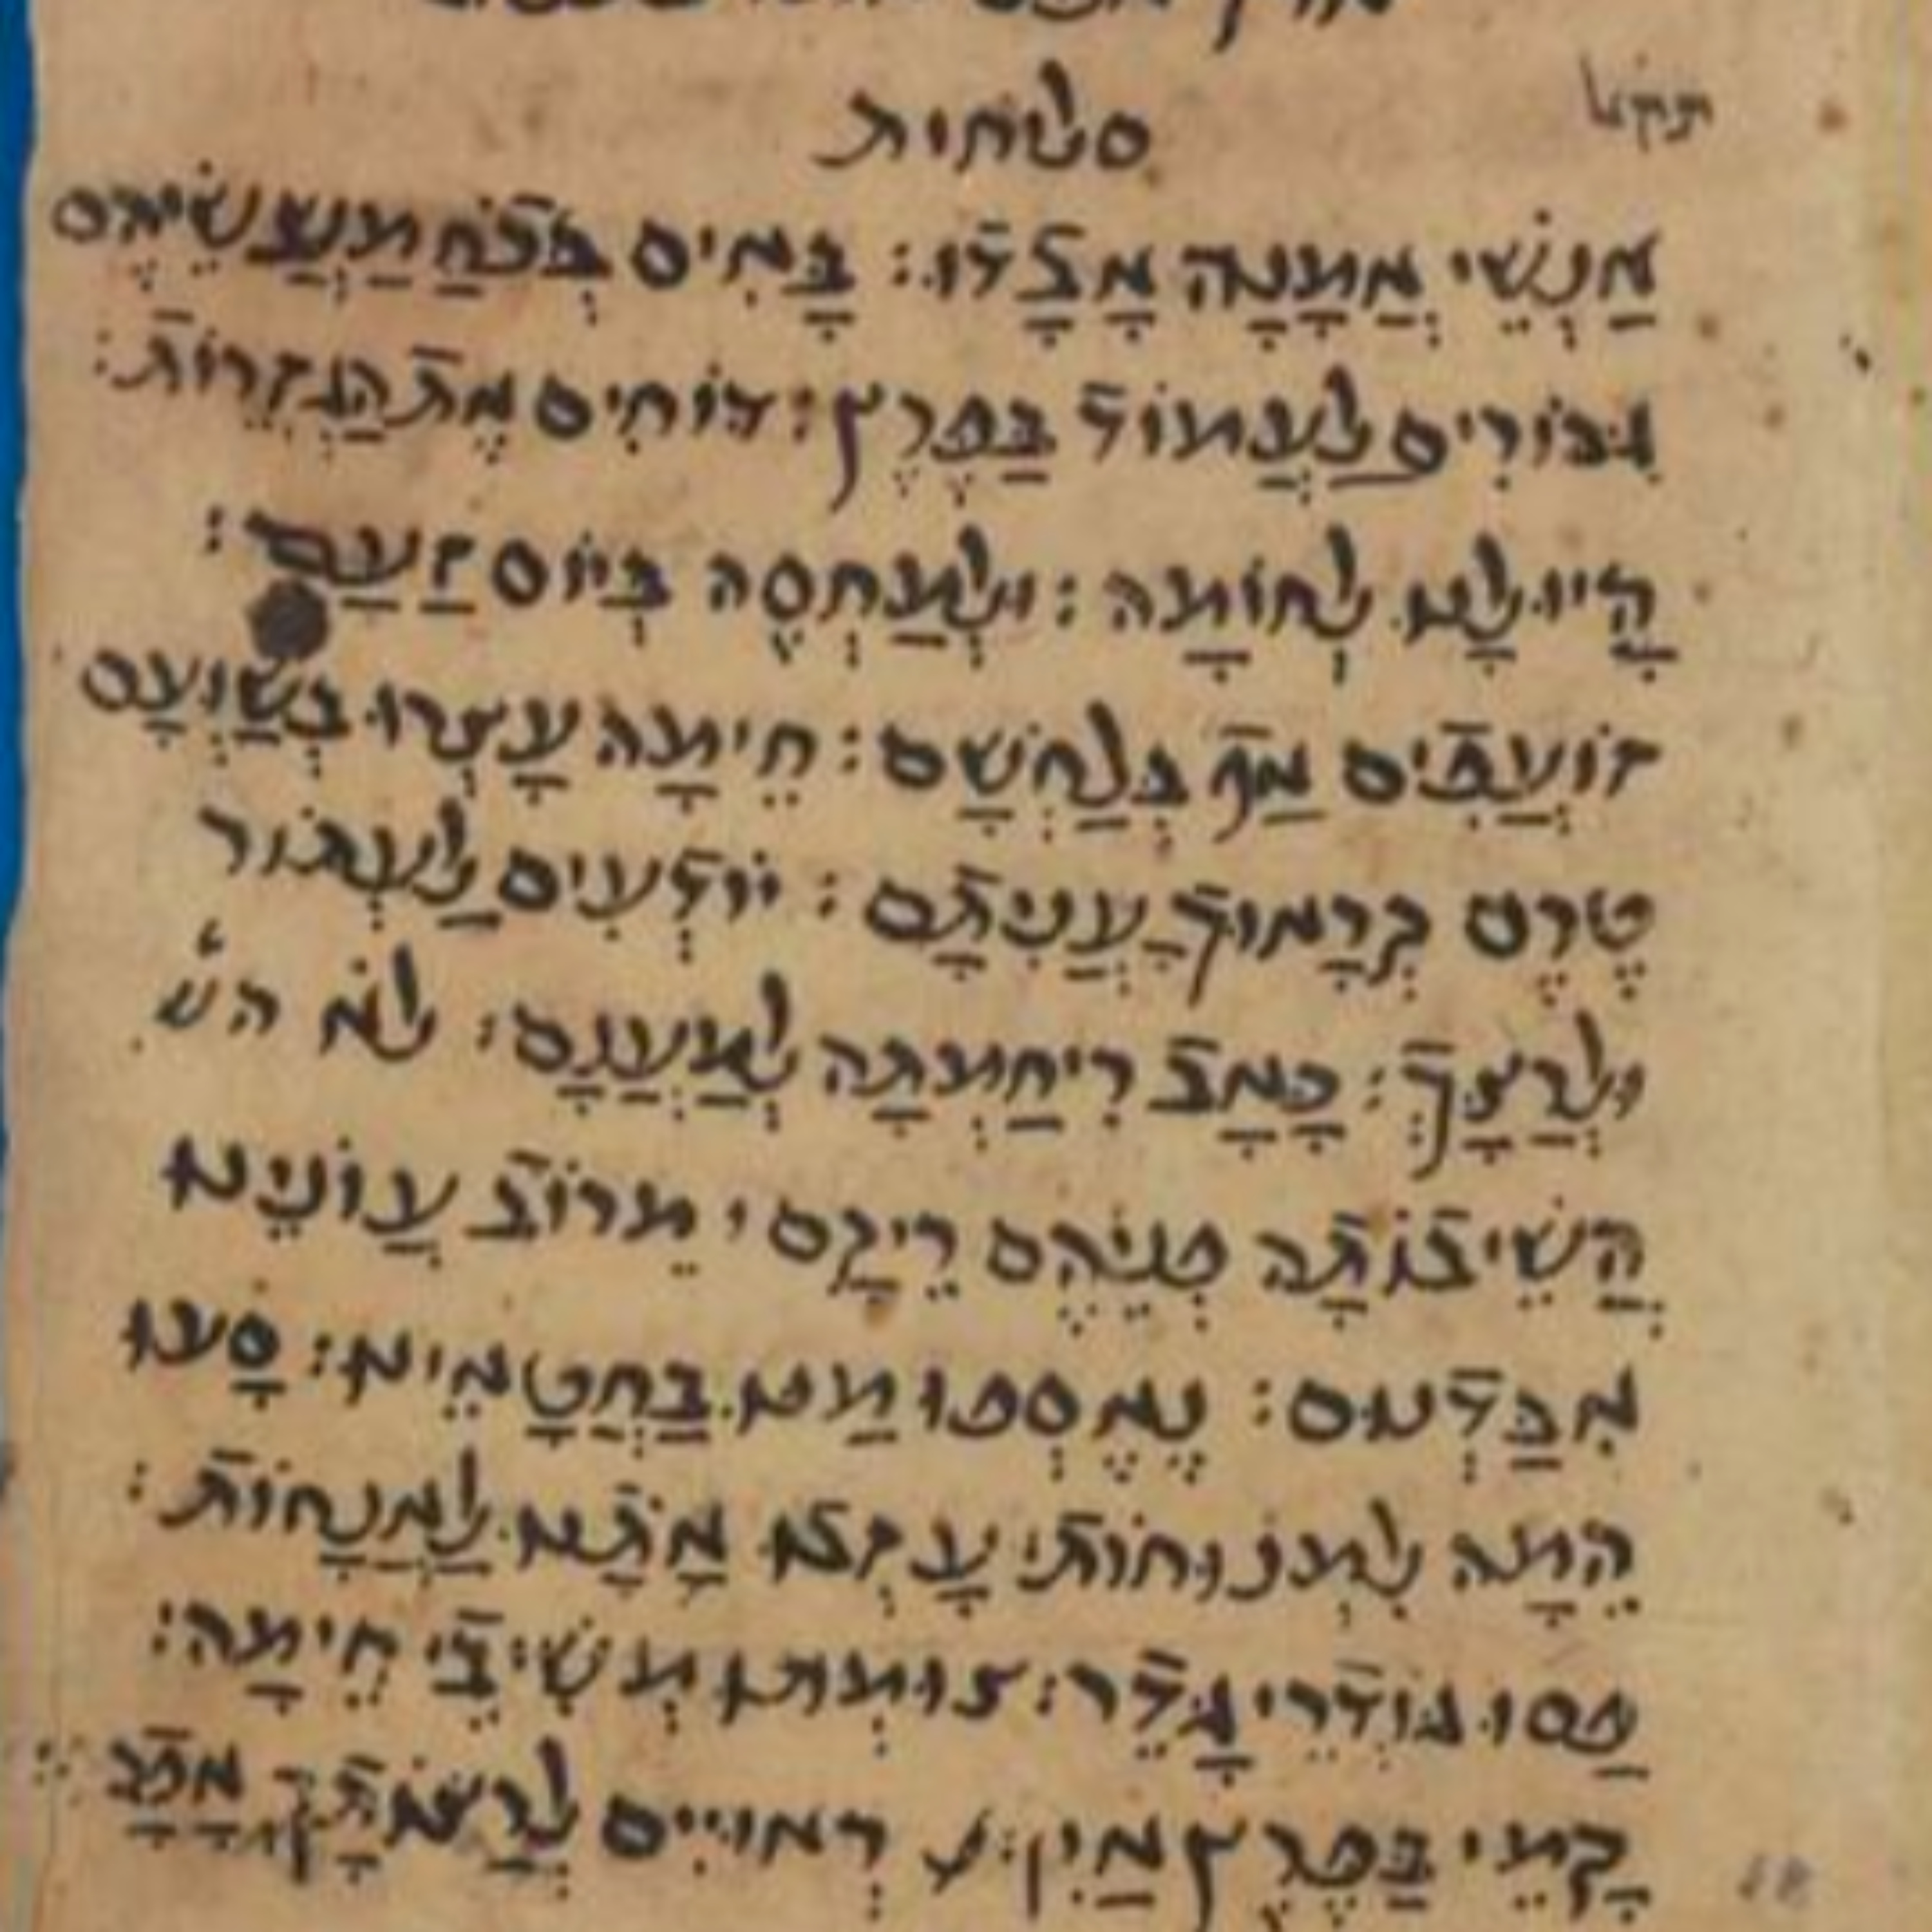 סטחית
אַנְשֵׁי אֲמָנָה אָבָדוּ: בָּאִים בְּכֹחַ מַעֲשֵׂיהֶם
גִּבּוֹרִים לַעֲמוֹד בַּפֶּרֶץ: דּוֹחִים אֶת הַגְּזֵרוֹת:
הָיוּ לָנוּ לְחוֹמָה: וּלְמַחְסֶה בְּיוֹם זַעַם:
זוֹעֲכִים אַף בְּלַחְשָׁם: חֵימָה עָצְרוּ בְּשַׁוְּעָם
טֶרֶם קְרָאוּךָ עֲנִיתָם: יוֹדְעִים לַעְתּוֹר
וּלְרַצֶּךָ: כְּאָב רִיחַמְתָּה לְמַעֲנָם: לֹא הש
הֲשֵׁיבוֹתָה פְּנֵיהֶם רֵיקָם: מֵרוֹב עֲוֹנֵינוּ
אִבַּדְנוּם: נֶאֶסְפוּ מַנוּ בַּחֲטָאֵינוּ: סָעוּ
הֵמָּה לִמְנוּחוֹת: עָזְבוּ אֹתָנוּ לַאֲנָחוֹת:
פַּסוּ גוֹדְרֵי גָדֵר: צוּמְתוּ מְשִׁיבֵי חֵימָה:
קָמֵי בַּפֶּרֶץ אַיִן: רְאוּיִים לְרַצֹּתָךְ אָפֵס